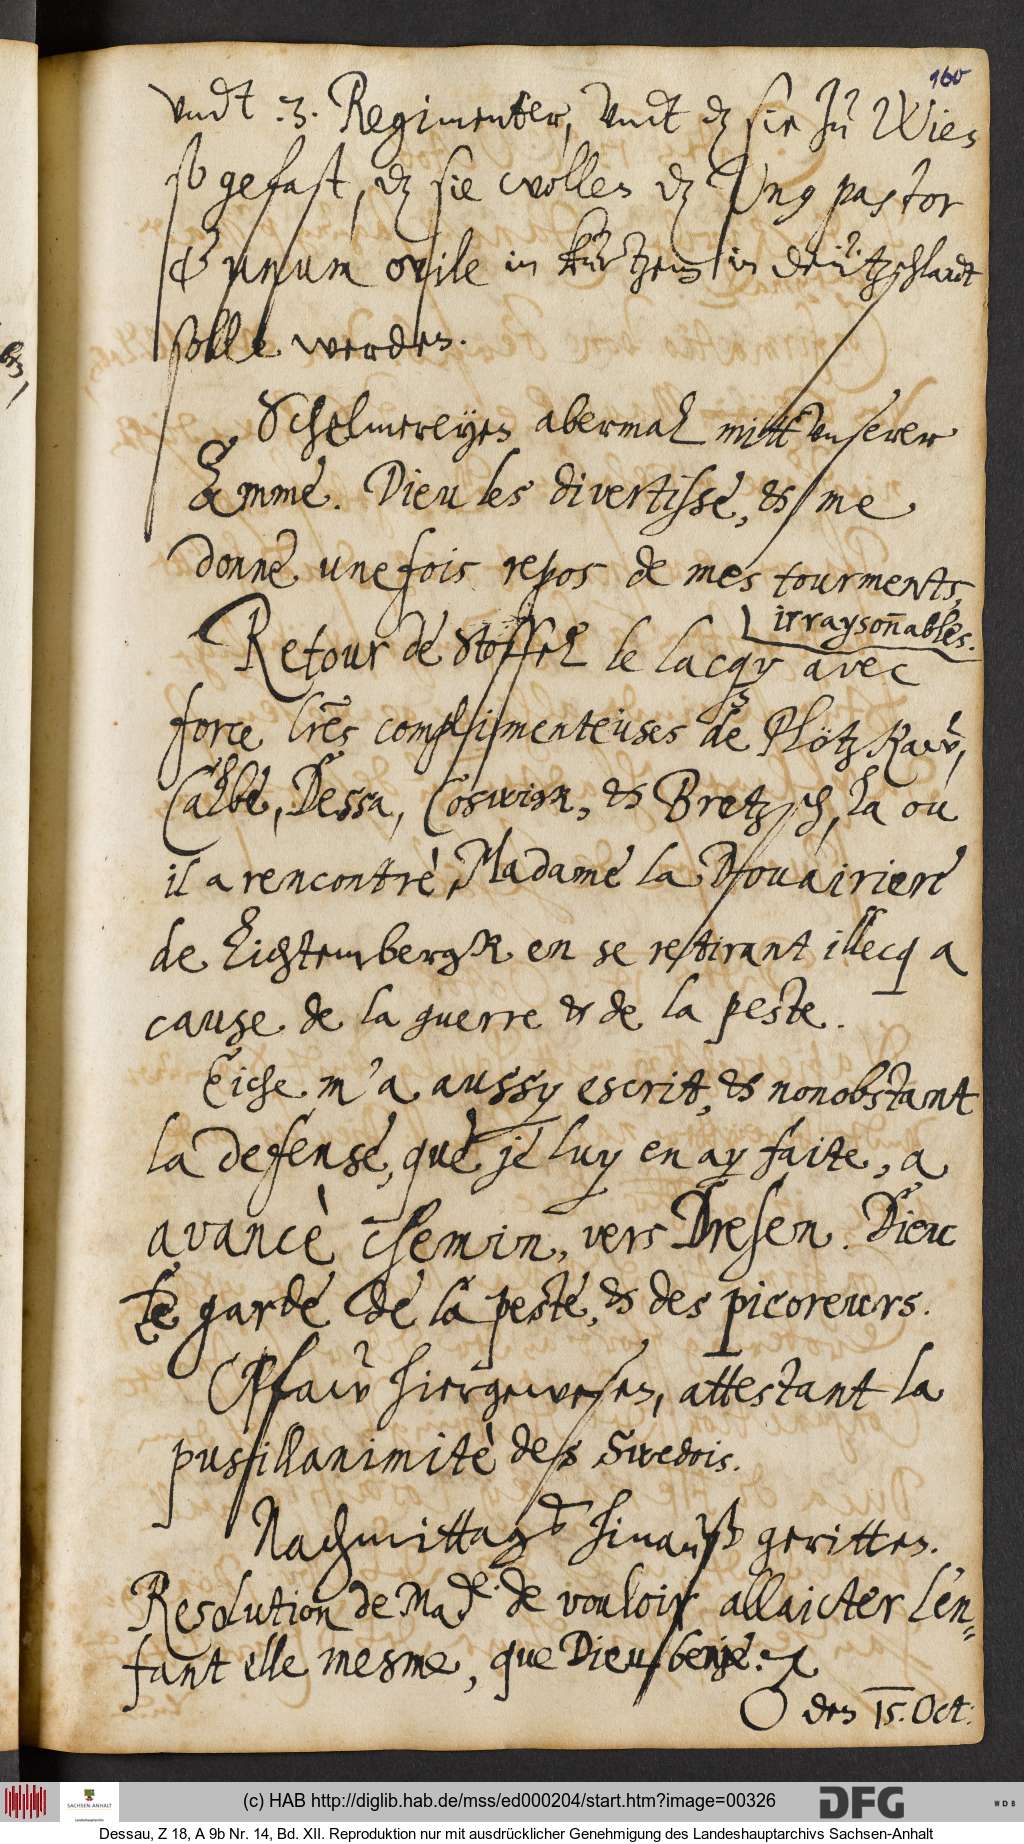 160
vndt .3. Regimenter, vndt dz sie zu Wien
so gefast, dz sie wollen dz Vnq pastor
& unum ovile in kurtzem in deützschlandt
solle werden.
Schelmereyen abermal mitt vnserer
Emme. Dieu les divertisse, & me
donne une fois repos de mes tourments,
irraysonnables.
Retour de Stoffel le lacqy avec
force lres complimenteuses de Plötzkaw,
Calbe, Dessa, Coswigk, & Bretzsch, la ou
il a rencontrè, Madame la Douairiere
de Lichtembergk en se retirant illecq a
cause de la guerre & de la peste.
Eiche m'a aussy escrit, & nonobstant
la defense, que je luy en ay faite, a
avancè chemin, vers Dresen. Dieu
le garde de la peste, & des picoreurs.
Pfaw hiergewesen, attestant la
pusillanimitè des Swedois.
Nachmittags hinauß geritten.
Resolution de Made. de vouloir allaicter l'en-
fant elle mesme, que Dieu benie.
den 15. Oct:
(c) HAB http://diglib.hab.de/mss/ed000204/start.htm?image=00326
SACHSEN-ANHALT
Landeshauptarchiv
DFG
WDB
Dessau, Z 18, A 9b Nr. 14, Bd. XII. Reproduktion nur mit ausdrücklicher Genehmigung des Landeshauptarchivs Sachsen-Anhalt